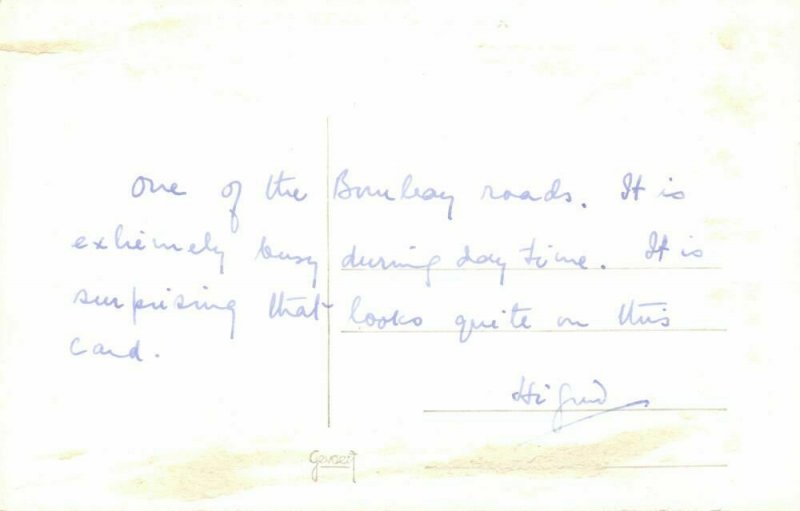 One of the Bombay roads. It is
extremely busy during day time. It is
surprising that looks quite on this
card.
Gevaert